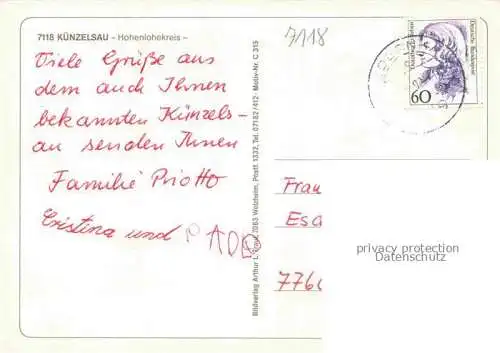 7118 KÜNZELSAU – Hohenlohekreis –
7118
Viele Grüße aus
dem auch Ihnen
bekannten Künzels-
au senden Ihnen
Familie Priotto
Cristina und
Bildverlag Arthur L. 7063 Welzheim, Postf. 1332, Tel. 07182 / 412 · Motiv-Nr. C 315
Deutsche Bundespost
60
Frau
Esa
776
privacy protection
Datenschutz